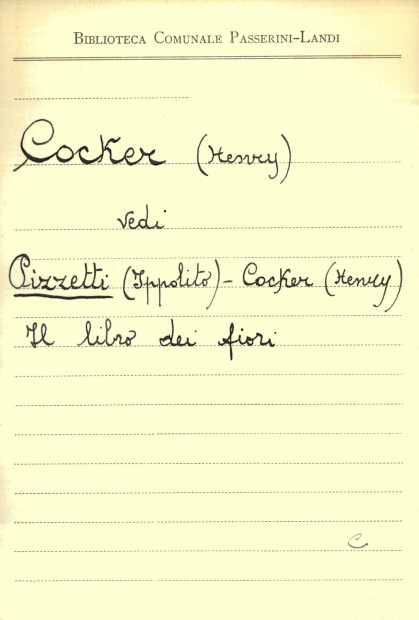 BIBLIOTECA COMUNALE PASSERINI-LANDI
Cocker (Henry)
vedi
Pizzetti (Ippolito) - Cocker (Henry)
Il libro dei fiori
C